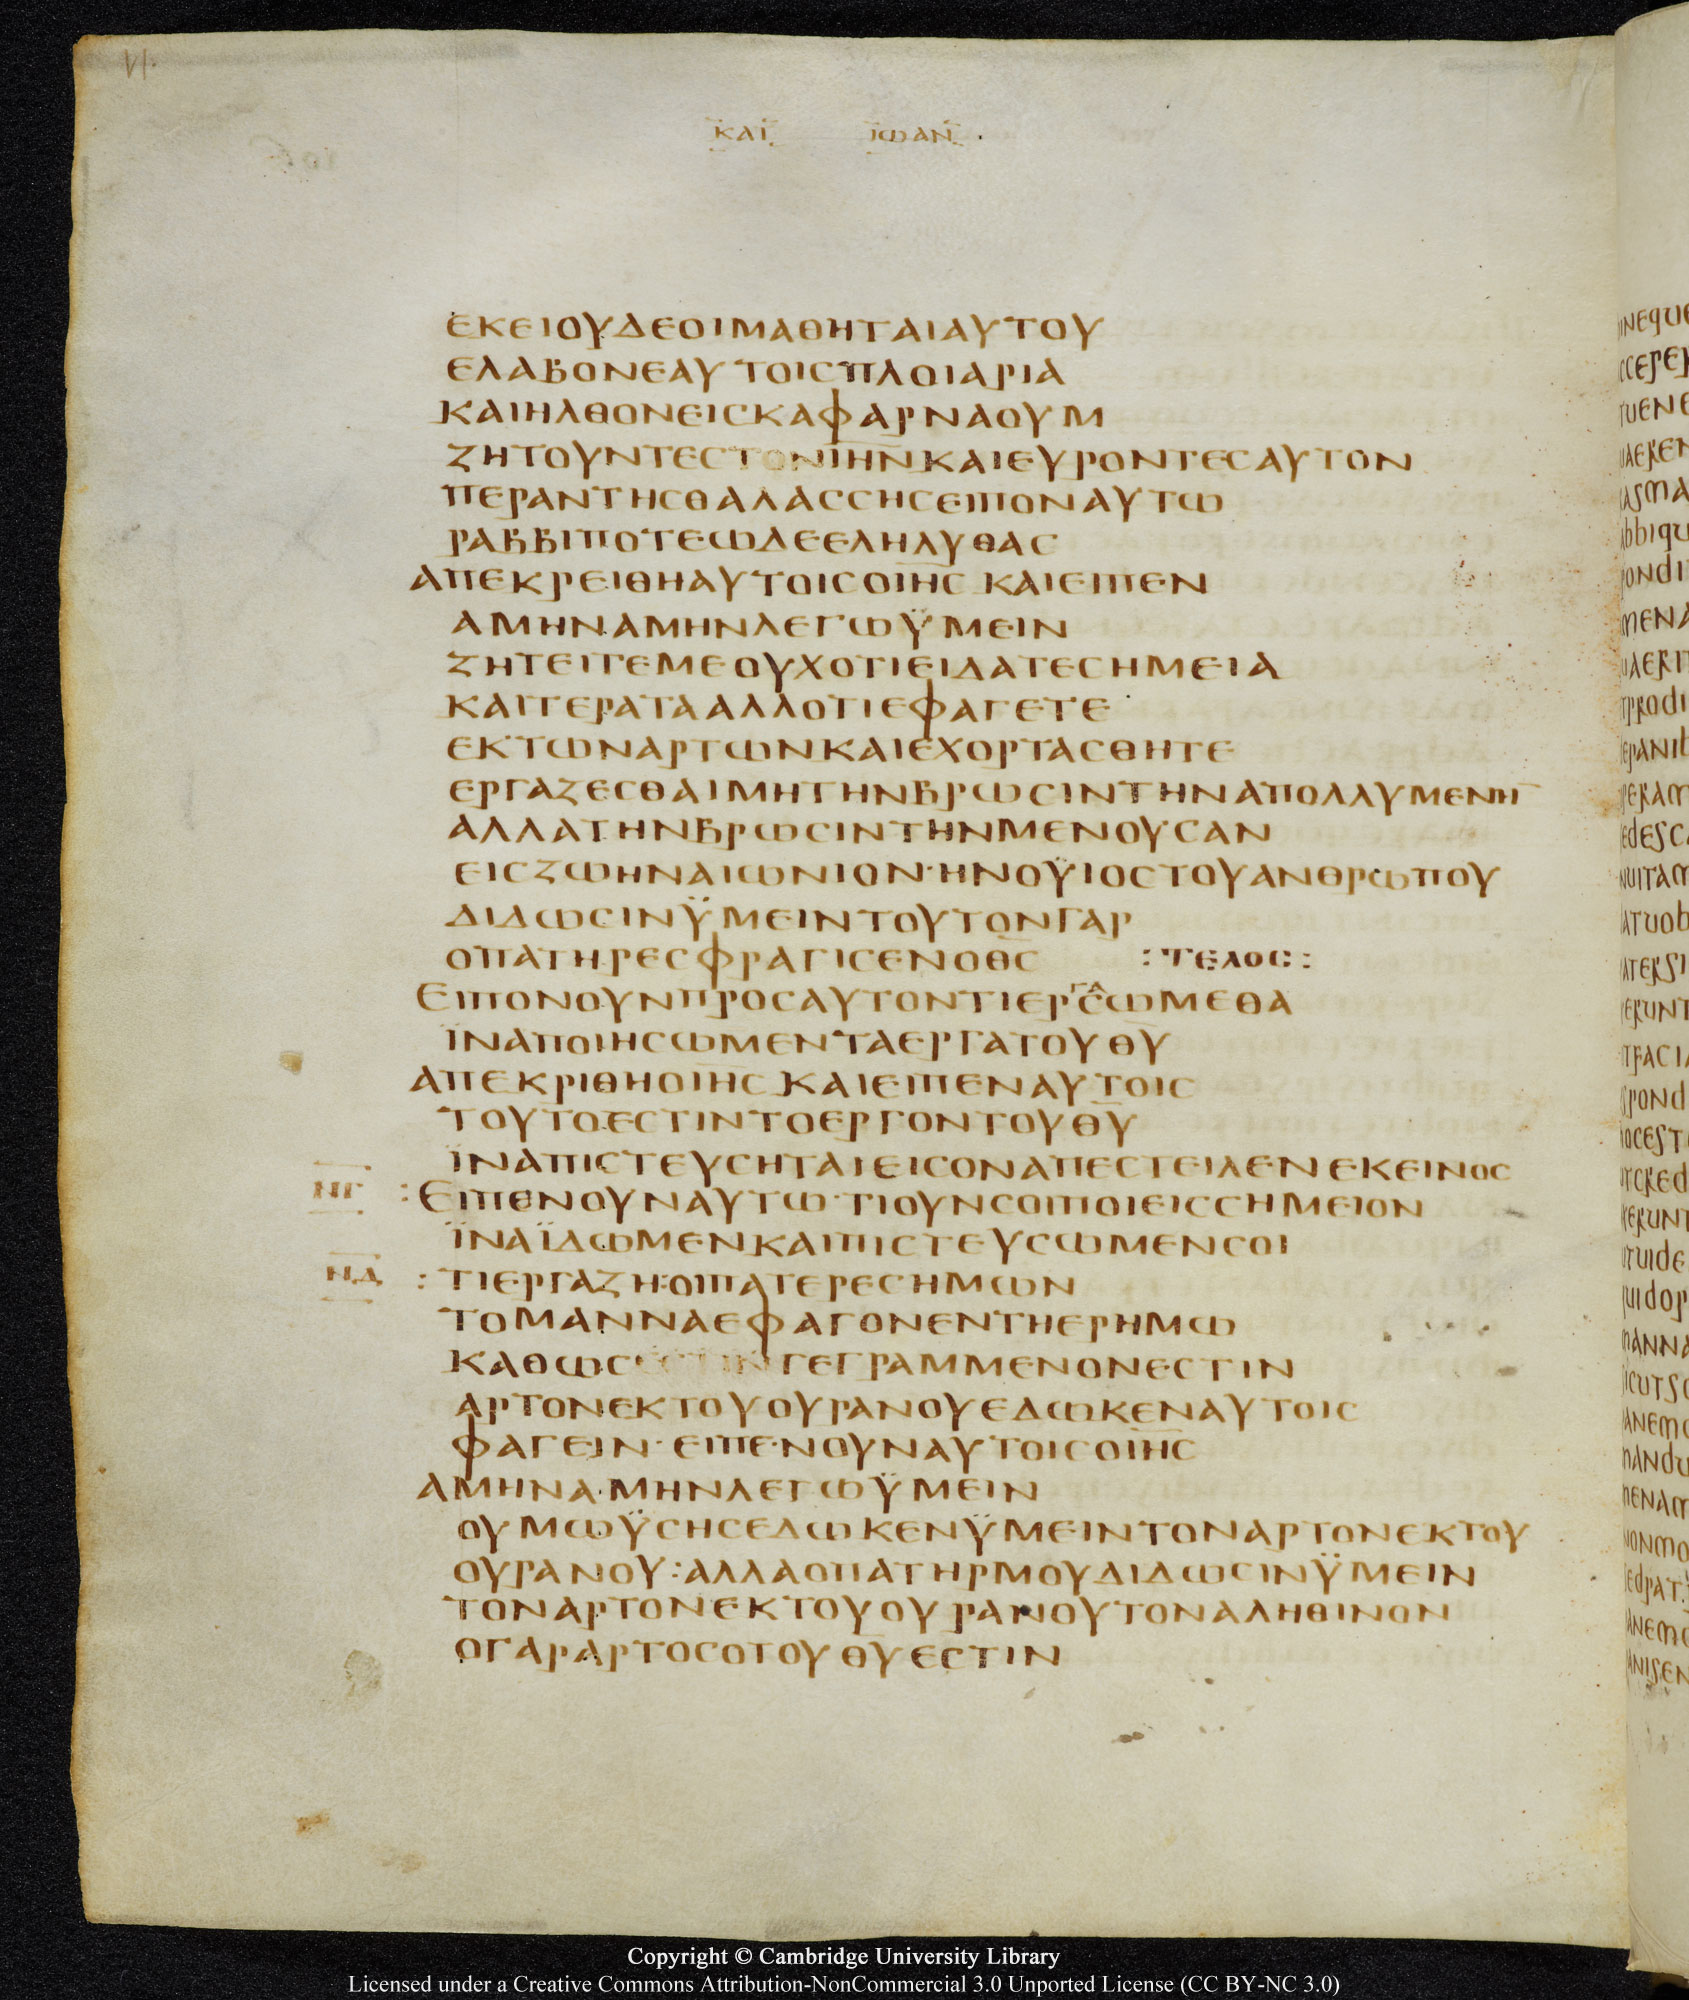 VI.
ΚΑΙ ΙΩΑΝ
ΕΚΕΙΟΥΔΕΟΙΜΑΘΗΤΑΙΑΥΤΟΥ
ΕΛΑΒΟΝΕΑΥΤΟΙϹΠΛΟΙΑΡΙΑ
ΚΑΙΗΛΘΟΝΕΙϹΚΑΦΑΡΝΑΟΥΜ
ΖΗΤΟΥΝΤΕϹΤΟΝΙ̅Η̅Ν̅ΚΑΙΕΥΡΟΝΤΕϹΑΥΤΟΝ
ΠΕΡΑΝΤΗϹΘΑΛΑϹϹΗϹΕΙΠΟΝΑΥΤΩ
ΡΑΒΒΙΠΟΤΕΩΔΕΕΛΗΛΥΘΑϹ
ΑΠΕΚΡΕΙΘΗΑΥΤΟΙϹΟΙ̅Η̅Ϲ̅ ΚΑΙΕΙΠΕΝ
ΑΜΗΝΑΜΗΝΛΕΓΩΫΜΕΙΝ
ΖΗΤΕΙΤΕΜΕΟΥΧΟΤΙΕΙΔΑΤΕϹΗΜΕΙΑ
ΚΑΙΤΕΡΑΤΑΑΛΛΟΤΙΕΦΑΓΕΤΕ
ΕΚΤΩΝΑΡΤΩΝΚΑΙΕΧΟΡΤΑϹΘΗΤΕ
ΕΡΓΑΖΕϹΘΑΙΜΗΤΗΝΒΡΩϹΙΝΤΗΝΑΠΟΛΛΥΜΕΝΗ̅
ΑΛΛΑΤΗΝΒΡΩϹΙΝΤΗΝΜΕΝΟΥϹΑΝ
ΕΙϹΖΩΗΝΑΙΩΝΙΟΝ·ΗΝΟΫΙΟϹΤΟΥΑΝΘΡΩΠΟΥ
ΔΙΔΩϹΙΝΫΜΕΙΝΤΟΥΤΟΝΓΑΡ
ΟΠΑΤΗΡΕϹΦΡΑΓΙϹΕΝΟΘ̅Ϲ̅ :ΤΕΛΟϹ:
ΕΙΠΟΝΟΥΝΠΡΟϹΑΥΤΟΝΤΙΕΡΓΑϹΩΜΕΘΑ
ΪΝΑΠΟΙΗϹΩΜΕΝΤΑΕΡΓΑΤΟΥΘ̅Υ̅
ΑΠΕΚΡΙΘΗΟΙ̅Η̅Ϲ̅ ΚΑΙΕΙΠΕΝΑΥΤΟΙϹ
ΤΟΥΤΟΕϹΤΙΝΤΟΕΡΓΟΝΤΟΥΘ̅Υ̅
ΪΝΑΠΙϹΤΕΥϹΗΤΑΙΕΙϹΟΝΑΠΕϹΤΕΙΛΕΝΕΚΕΙΝΟϹ
ΝΓ :ΕΙΠΕΝΟΥΝΑΥΤΩ·ΤΙΟΥΝϹΟΙΠΟΙΕΙϹϹΗΜΕΙΟΝ
ΪΝΑΪΔΩΜΕΝΚΑΙΠΙϹΤΕΥϹΩΜΕΝϹΟΙ
ΝΔ :ΤΙΕΡΓΑΖΗ:ΟΙΠΑΤΕΡΕϹΗΜΩΝ
ΤΟΜΑΝΝΑΕΦΑΓΟΝΕΝΤΗΕΡΗΜΩ
ΚΑΘΩϹΕϹΤΙΝΓΕΓΡΑΜΜΕΝΟΝΕϹΤΙΝ
ΑΡΤΟΝΕΚΤΟΥΟΥΡΑΝΟΥΕΔΩΚΕΝΑΥΤΟΙϹ
ΦΑΓΕΙΝ·ΕΙΠΕΝΟΥΝΑΥΤΟΙϹΟΙ̅Η̅Ϲ̅
ΑΜΗΝΑΜΗΝΛΕΓΩΫΜΕΙΝ
ΟΥΜΩΫϹΗϹΕΔΩΚΕΝΫΜΕΙΝΤΟΝΑΡΤΟΝΕΚΤΟΥ
ΟΥΡΑΝΟΥ:ΑΛΛΑΟΠΑΤΗΡΜΟΥΔΙΔΩϹΙΝΫΜΕΙΝ
ΤΟΝΑΡΤΟΝΕΚΤΟΥΟΥΡΑΝΟΥΤΟΝΑΛΗΘΙΝΟΝ
ΟΓΑΡΑΡΤΟϹΟΤΟΥΘ̅Υ̅ΕϹΤΙΝ
Copyright © Cambridge University Library
Licensed under a Creative Commons Attribution-NonCommercial 3.0 Unported License (CC BY-NC 3.0)